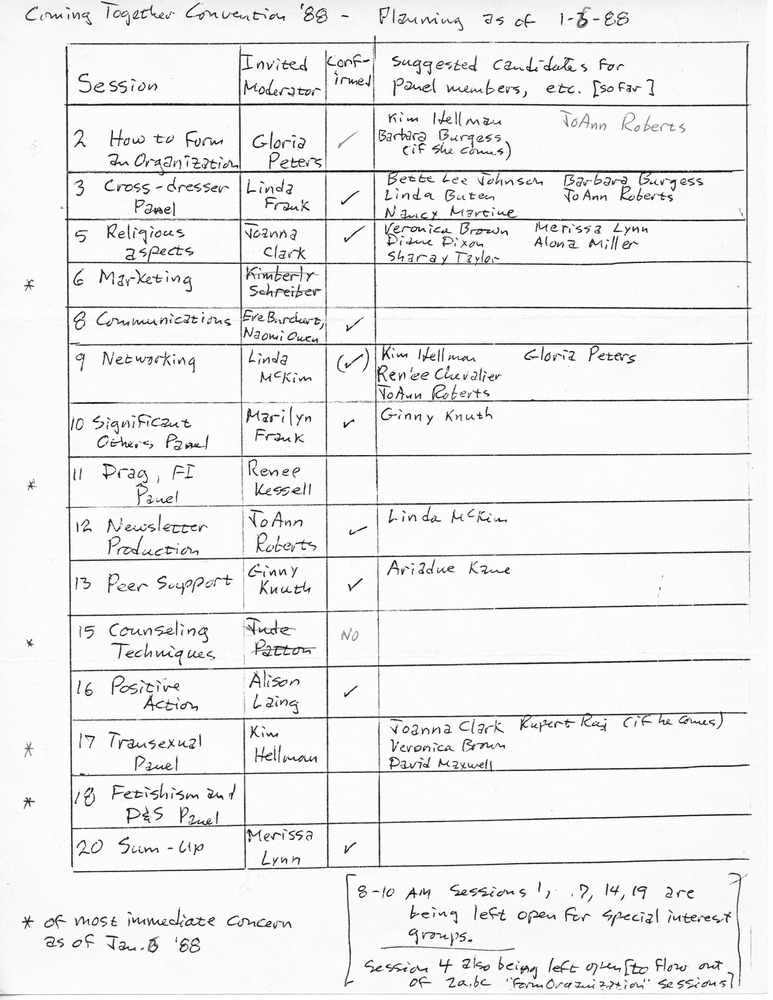 Coming Together Convention '88 - Planning as of 1-6-88
Session
Invited
Moderator
Conf-
irmed
Suggested candidates for
panel members, etc. [so far]
2 How to Form
an Organization
Gloria
Peters
✓
Kim Hellman JoAnn Roberts
Barbara Burgess
(if she comes)
3 Cross-dresser
Panel
Linda
Frank
✓
Bette Lee Johnson Barbara Burgess
Linda Buten JoAnn Roberts
Nancy Martine
5 Religious
aspects
Joanna
Clark
✓
Veronica Brown Merissa Lynn
Diane Dixon Alona Miller
Sharay Taylor
* 6 Marketing
Kimberly
Schreiber
8 Communications
Eve Burchert,
Naomi Owen
✓
9 Networking
Linda
McKim
(✓)
Kim Hellman Gloria Peters
Ren'ee Chevalier
JoAnn Roberts
10 Significant
Others Panel
Marilyn
Frank
✓
Ginny Knuth
* 11 Drag, FI
Panel
Renee
Kessell
12 Newsletter
Production
JoAnn
Roberts
✓
Linda McKim
13 Peer Support
Ginny
Knuth
✓
Ariadne Kane
* 15 Counseling
Techniques
Jude
Patton
NO
16 Positive
Action
Alison
Laing
✓
* 17 Transexual
Panel
Kim
Hellman
Joanna Clark Rupert Raj (if he comes)
Veronica Brown
David Maxwell
* 18 Fetishism and
D&S Panel
20 Sum-Up
Merissa
Lynn
✓
* of most immediate concern
as of Jan. 6 '88
[8-10 AM Sessions 1, 7, 14, 19 are
being left open for special interest
groups.
Session 4 also being left open [to flow out
of 2a,b,c "Form Organization" sessions]